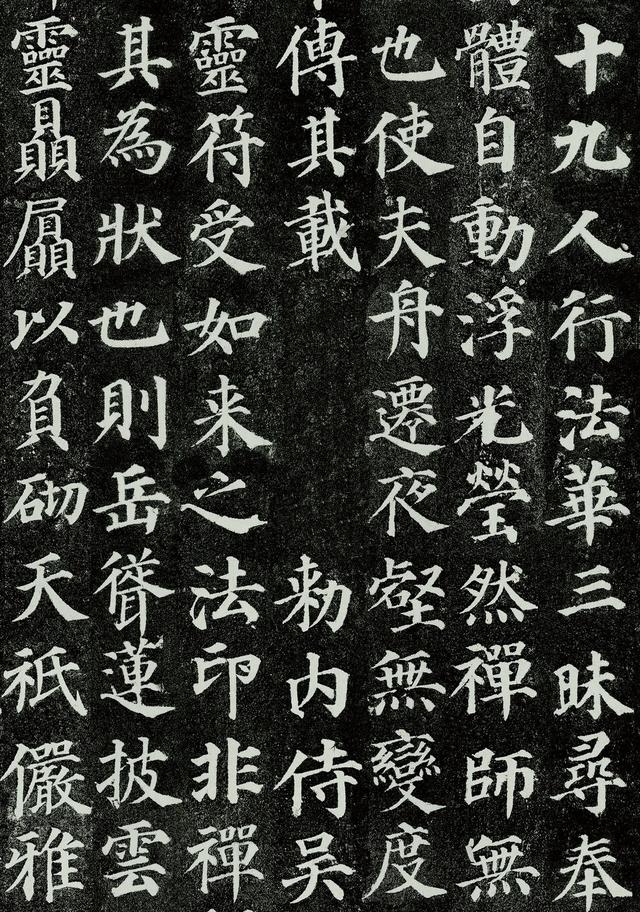 十九人行法華三昧尋奉
體自動浮光瑩然禪師無
也使夫舟遷夜壑無變度
傳其載 勅内侍吴
靈符受如来之法印非禪
其為狀也則岳聳蓮披雲
靈贔屭以負砌天祇儼雅